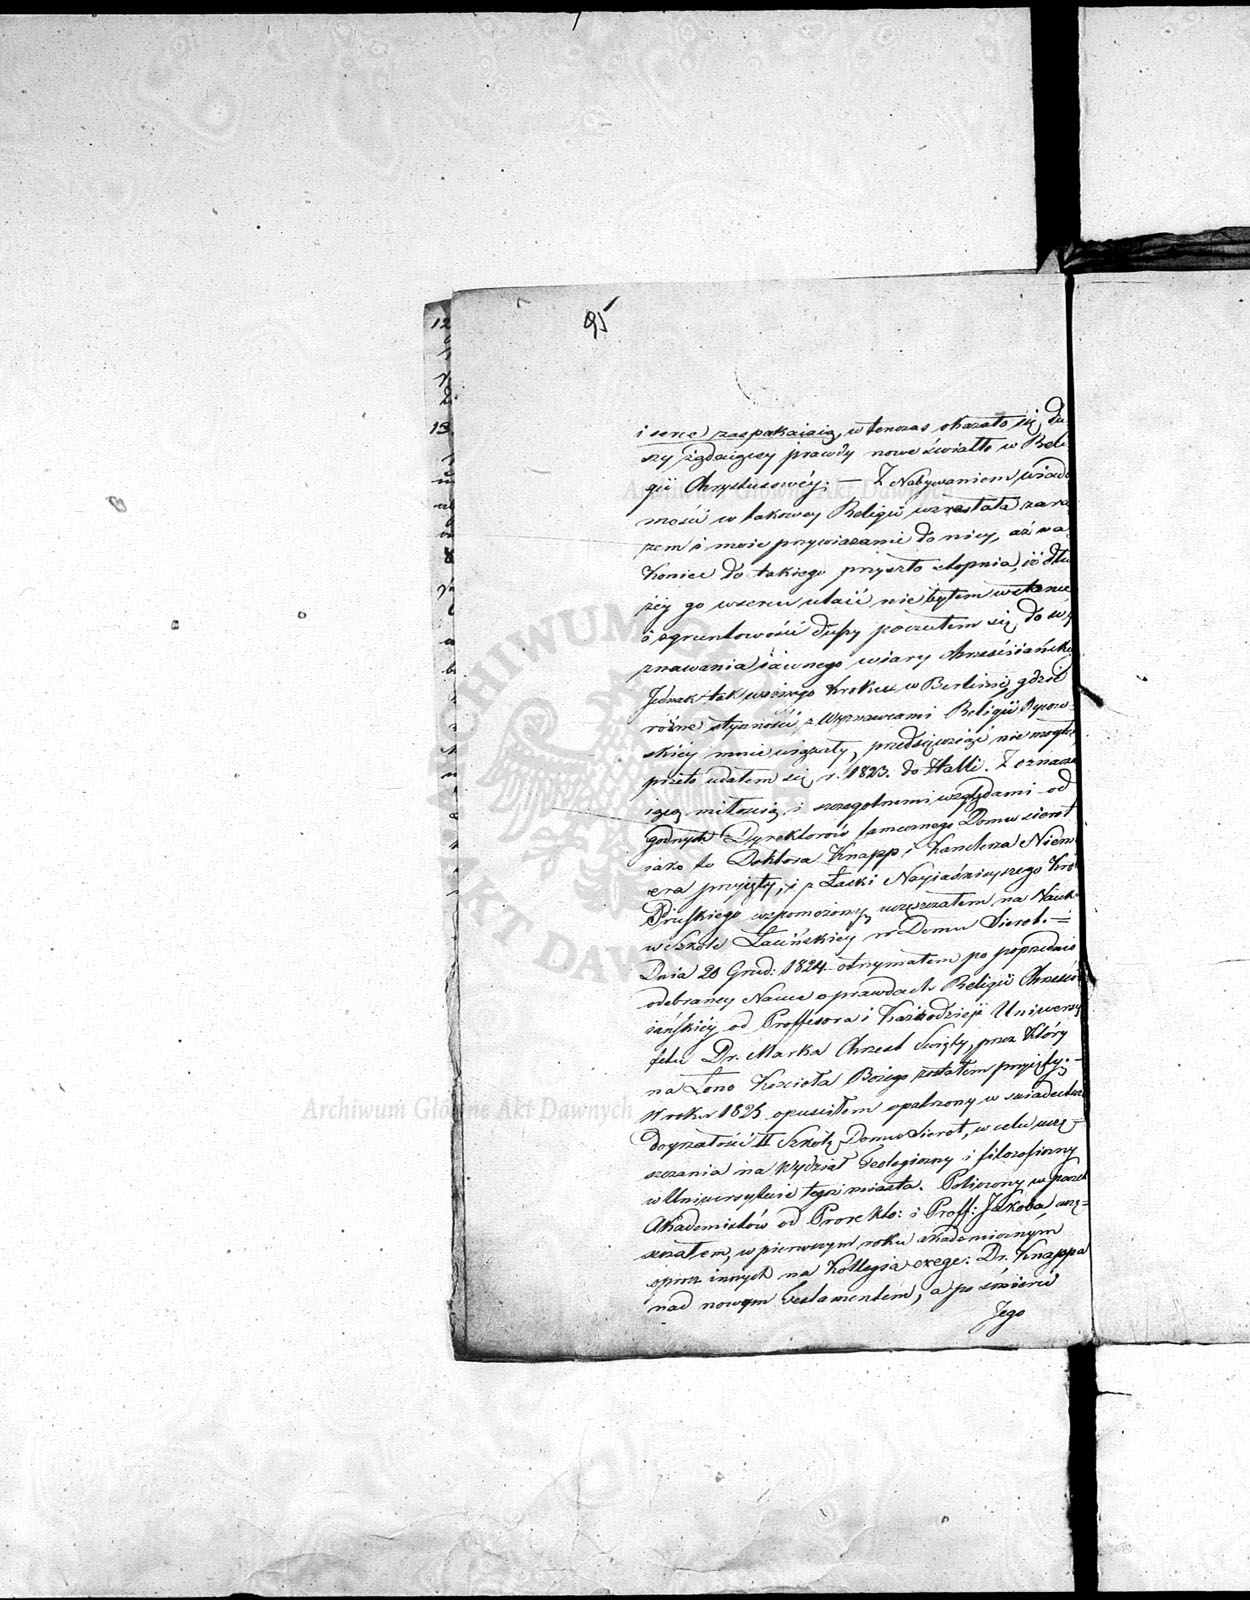 95
i serce zaspakaiaią, w tenczas okazało się du
szy żądaiącey prawdy nowe światło w Reli
gii Chrystusowéy. — Z Nabywaniem wiado
mości w takowey Religii wzrastała zara
zem i moie przywiązanie do niey, aż na
koniec do takiego przyszło stopnia, iż dłu
żéy go w sercu utaić nie byłem w stanie
i z gruntowości duszy poczułem się do wy
znawania iawnego wiary chrześciańskiéy
Jednak tak ważnego kroku w Berlinie, gdzie
różne styczności z Wyznawcami Religii Żydow-
skiéy mnie wiązały, przedsięwziąść nie mogłem
przeto udałem się r. 1823. do Halli. Z oznacza
iącą miłością i szczególnemi względami od
godnych Dyrektorów tamecznego Domu sierot
iako to Doktora Knapp i Kanclerza Niem
era przyięty, i z Łaski Nayiaśnieyszego Kró
Pruskiego wspomożony uczęszczałem na Nauk
w szkole Łacińskiéy w Domu Sierot. =
Dnia 20 Grud: 1824 otrzymałem po poprzednio
odebraney Nauce o prawdach Religii Chrześci
iańskiéy od Proffesora i Kaznodzieji Uniwersy
tetu Dr. Marka Chrzest Święty, przez który
na Łono Kościoła Bożego zostałem przyięty. —
W roku 1825 opuściłem opatrzony w świadectwo
doyrzałości II Szkołę Domu Sierot, w celu uczę=
szczania na Wydział Teologiczny i filozoficzny
w Uniwersytecie tegoż miasta. Policzony w poczet
Akademików od Prorekto: i Proff: Jakoba uczę=
szczałem, w pierwszym roku akademicznym
oprócz innych na Kollegia exege: Dr. Knappa
nad nowym Testamentem, a po śmierci
Jego
12
13
Archiwum Główne Akt Dawnych
Archiwum Główne Akt Dawnych
ARCHIWUM GŁÓWNE AKT DAWNYCH